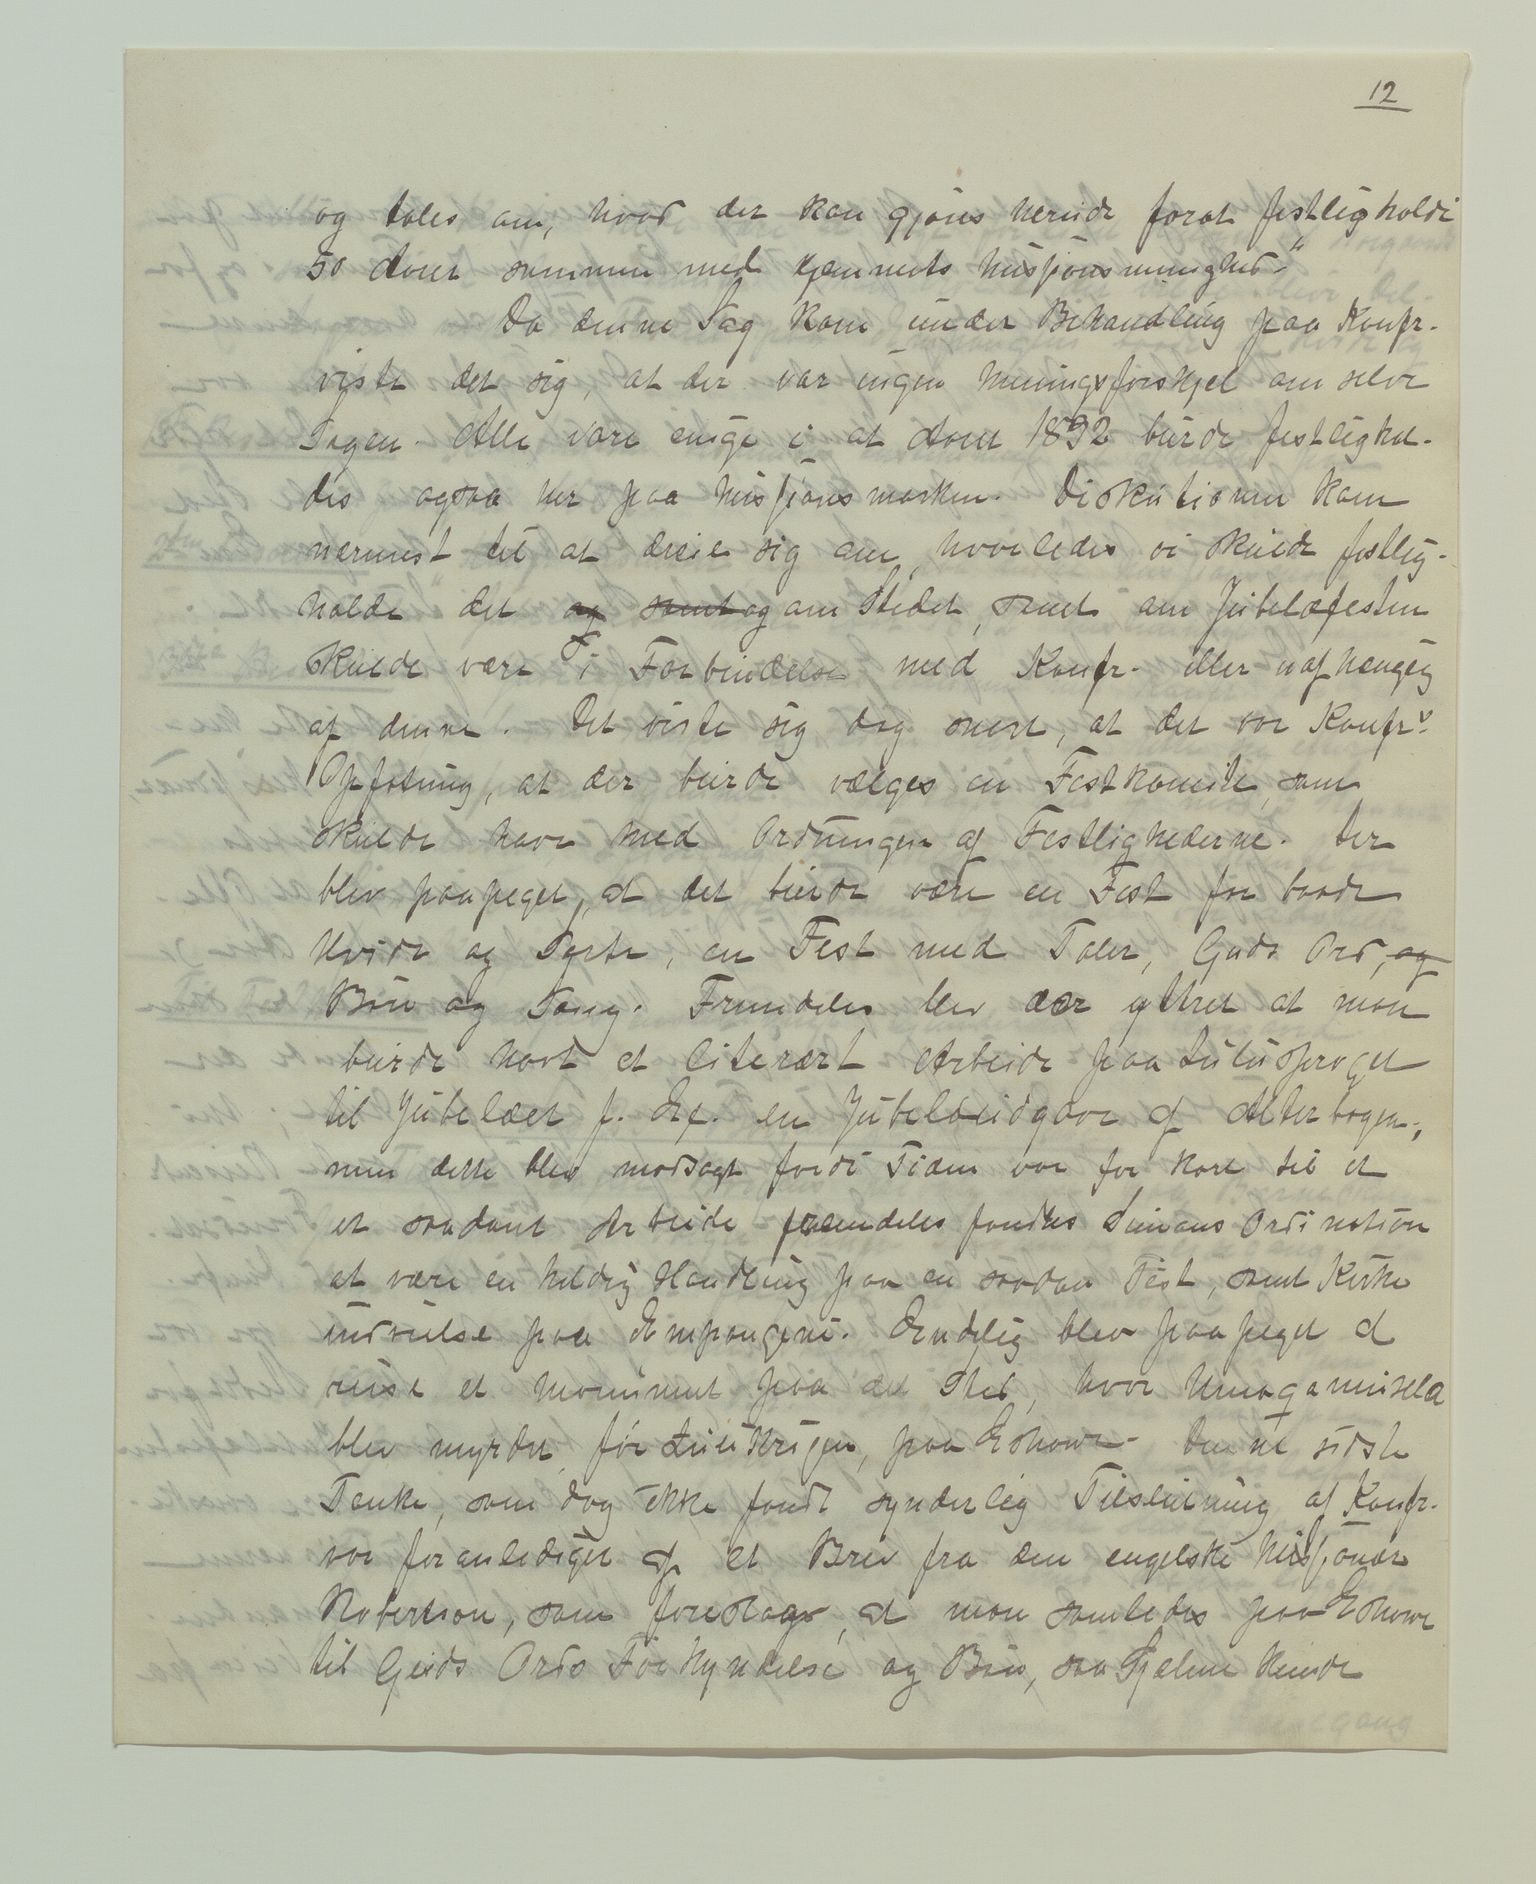 12
og tales om, hvad der kan gjøres herude forat festligholde
50 Aaret sammen med Hjemmets Missionsmenighed."
Da denne Sag kom under Behandling paa Konfr.
viste det sig, at der var ingen Meningsforskjel om selve
Sagen. Alle vare enige i at Aaret 1892 burde festlighol-
des ogsaa her paa Missionsmarken. Diskutionen kom
nærmest til at dreie sig om, hvorledes vi skulde festlig-
holde det og samt og om Stedet, samt om Jubelæfesten
skulde være i Forbindelse med Konfr. eller uafhængig
af denne. Det viste sig dog snart, at det var Konfr.s
Opfatning, at der burde vælges en Festkomite, som
skulde have med Ordningen af Festlighederne. Der
blev paapeget, at det burde være en Fest for baade
Hvide og Sorte, en Fest med Taler, Guds Ord, og
Bøn og Sang. Fremdeles blev der ytret at man
burde havt et literært Arbeide paa Zulusproget
til Jubelæet f. Ex. en Jubelæudgave af Alterbogen,
men dette blev modsagt fordi Tiden var for kort til et
et saadant Arbeide fremdeles fandtes Simons Ordination
at være en heldig Handling paa en saadan Fest, samt Kirke
indvielse paa Empangeni. Endelig blev paapeget at
reise et Monument paa det Sted, hvor Umaqamusela
blev myrdet, før Zulukrigen, paa Eshowe. Denne sidste
Tanke, som dog ikke fandt synderlig Tilslutning af Konfr.
var foranlediget af et Brev fra den engelske Missionær
Robertson, som foreslog, at man samledes paa Eshowe
til Guds Ords Forkyndelse og Bøn, saa Sjælene kunde